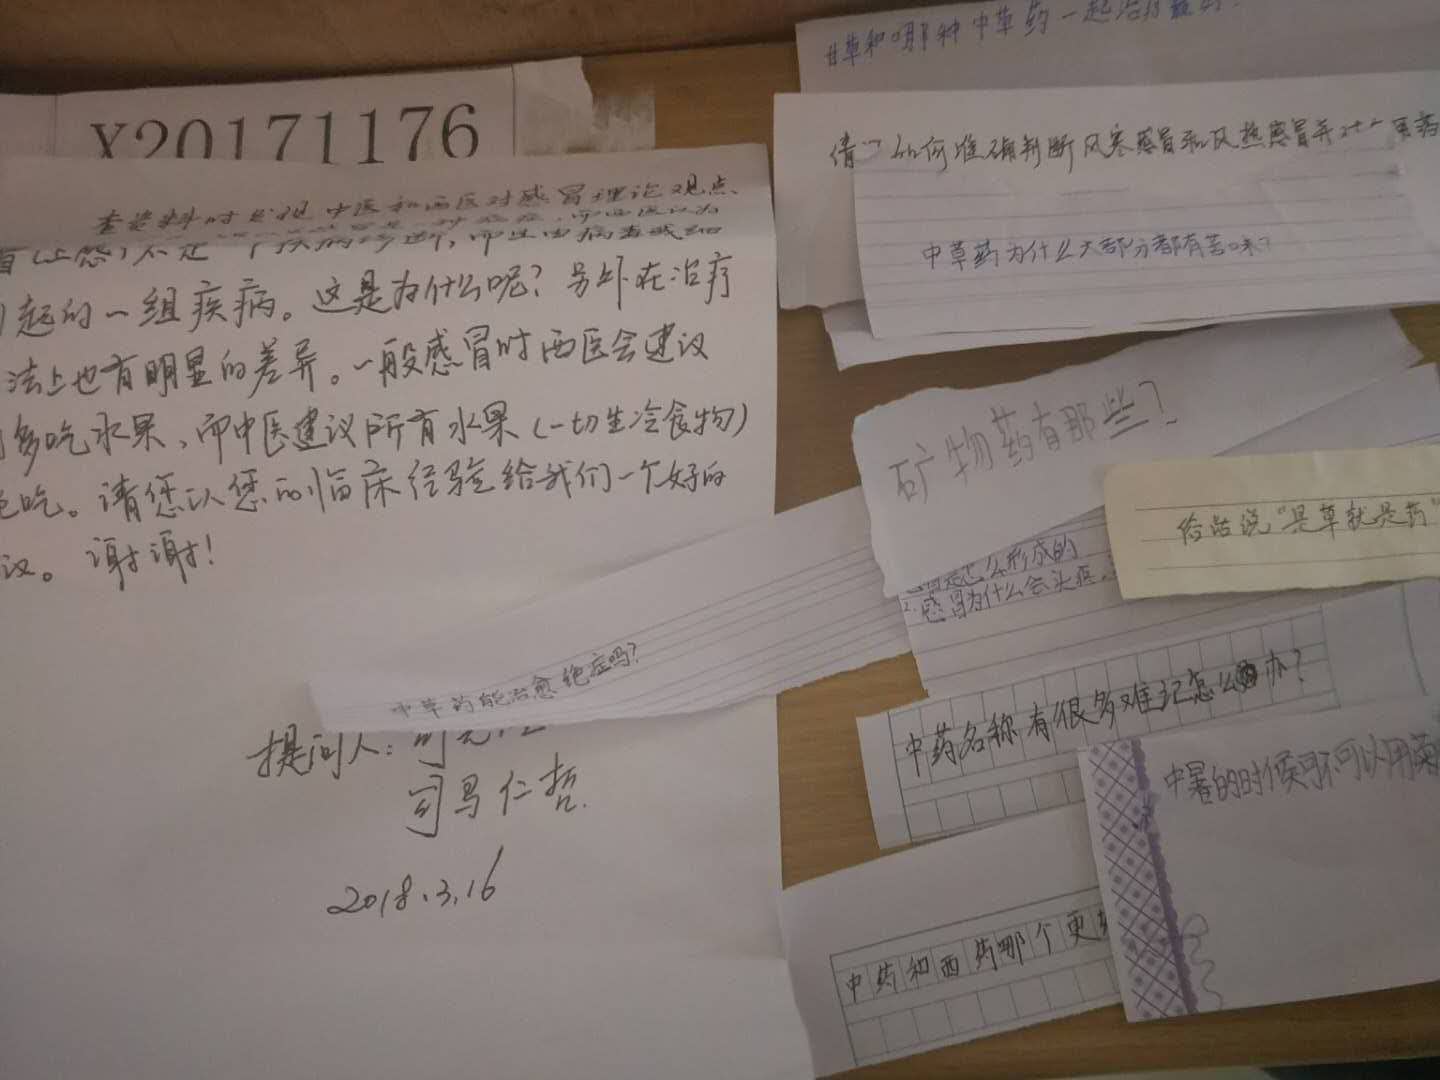 X20171176
查资料时发现中医和西医对感冒理论观点
起的一组疾病。这是为什么呢？另外在治疗
法上也有明显的差异。一般感冒时西医会建议
多吃水果，而中医建议所有水果（一切生冷食物）
吃。请您以您的临床经验给我们一个好的
议。谢谢！
中草药能治愈绝症吗？
提问人：
司马仁哲.
2018.3.16
甘草和哪种中草药一起治
如何准确判断风寒感冒和风热感冒并对
中草药为什么大部分都有苦味？
矿物药有那些？
俗话说“是草就是药”
是怎么形成的
2.感冒为什么会头疼
中药名称有很多难记怎么办？
中暑的时候可不可以用
中药和西药哪个更